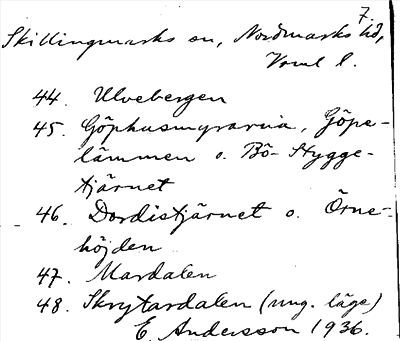 7.
Skillingmarks sn, Nordmarks hd,
Vrml l.
44. Ulvebergen
45. Göphusmyrarna, Göpe-
lämmen o. Bö- Stygge-
tjärnet
46. Dordistjärnet o. Örne-
höjden
47. Mardalen
48. Skrytardalen (ung. läge)
E. Andersson 1936.